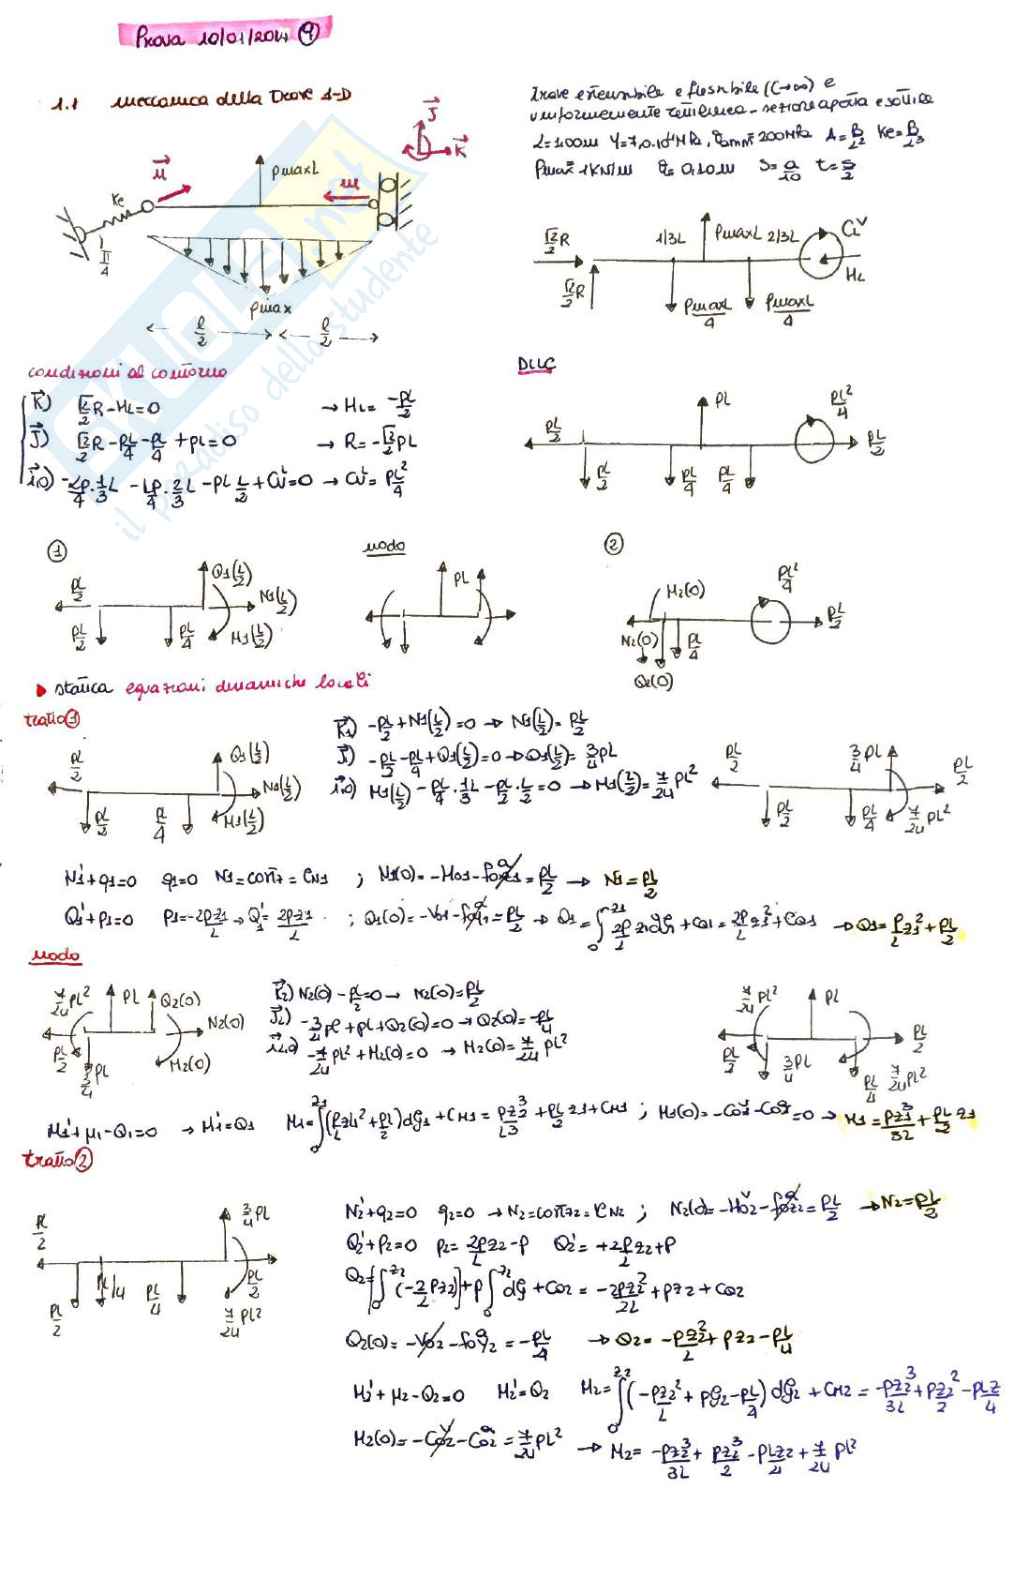 Prova 10/01/2014 ④
1.1 meccanica della Trave 1-D
Trave estensibile e flessibile (C→∞) e
uniformemente rettilinea - sezione aperta e sottile
L=1.00m Y=7,0.10⁴MPa, σamm=200MPa A=B/L² Ke=B/L³
Pmax=1KN/m a=0.10m S=a/10 t=S/2
J K
u Ke PmaxL m
π/4
Pmax
ℓ/2 ℓ/2
√2/2R 1/3L PmaxL 2/3L CLV
√2/2R PmaxL/4 PmaxL/4 HL
condizioni al contorno
K) √2/2R-HL=0 → HL=-PL/2
J) √2/2R-PL/4-PL/4+PL=0 → R=-√2/2PL
i,0) -LP/4·1/3L -LP/4·2/3L -PL L/2+CLV=0 → CLV=PL²/4
DCLC
PL/2 PL PL²/4 PL/2
PL/2 PL/4 PL/4
① nodo ②
PL/2 Q1(L/2) N1(L/2) PL/2 PL/4 M1(L/2)
PL
M2(0) PL²/4 PL/2 N2(0) PL/4 Q2(0)
statica equazioni dinamiche locali
tratto①
K1) -PL/2+N1(L/2)=0 → N1(L/2)=PL/2
J) -PL/2-PL/4+Q1(L/2)=0→Q1(L/2)=3/4PL
i,0) M1(L/2)-PL/4·1/3L-PL/2·L/2=0 → M1(L/2)=7/24PL²
PL/2 Q1(L/2) N1(L/2) PL/2 PL/4 M1(L/2)
PL/2 3/4PL PL/2 PL/2 PL/4 7/24PL²
N1'+q1=0 q1=0 N1=cost=CN1 ; N1(0)=-H01-f0z1=PL/2 → N1=PL/2
Q1'+P1=0 P1=-2Pz1/L → Q1'=2Pz1/L ; Q1(0)=-V01-f0y1=PL/2 → Q1=∫0z1 2P/L z1dζ1+CQ1=2Pz1²/L+CQ1 → Q1=Pz1²/L+PL/2
nodo
7/24PL² PL Q2(0) N2(0) PL/2 3/4PL M2(0)
K2) N2(0)-PL/2=0 → N2(0)=PL/2
J2) -3/4PL+PL+Q2(0)=0→Q2(0)=-PL/4
i2,0) -7/24PL²+M2(0)=0 → M2(0)=7/24PL²
7/24PL² PL PL/2 PL/2 3/4PL PL/4 7/24PL²
M1'+μ1-Q1=0 → M1'=Q1 M1=∫0z1(Pz1²/L+PL/2)dζ1+CM1=Pz1³/L3+PL/2z1+CM1 ; M1(0)=-C01-C01=0 → M1=Pz1³/3L+PL/2z1
tratto②
PL/2 3/4PL PL/2 PL/4 PL/4 PL/2 7/24PL²
N2'+q2=0 q2=0 → N2=cost2=CN2 ; N2(0)=-H02-f0z2=PL/2 → N2=PL/2
Q2'+P2=0 P2=2Pz2/L-P Q2'=+2P/Lz2+P
Q2=[∫0z2(-2/LPz2)]+P∫0z2dζ+CQ2=-2Pz2²/2L+Pz2+CQ2
Q2(0)=-V02-f0y2=-PL/4 → Q2=-Pz2²/L+Pz2-PL/4
M2'+μ2-Q2=0 M2'=Q2 M2=∫0z2(-Pz2²/L+Pζ2-PL/4)dζ2+CM2=-Pz2³/3L+Pz2²/2-PLz/4
M2(0)=-C02-C02=7/24PL² → M2=-Pz2³/3L+Pz2³/2-PLz2/4+7/24PL²
SKUOLA.net
il paradiso dello studente